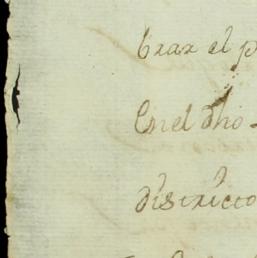 brar el p
En el dho
districto